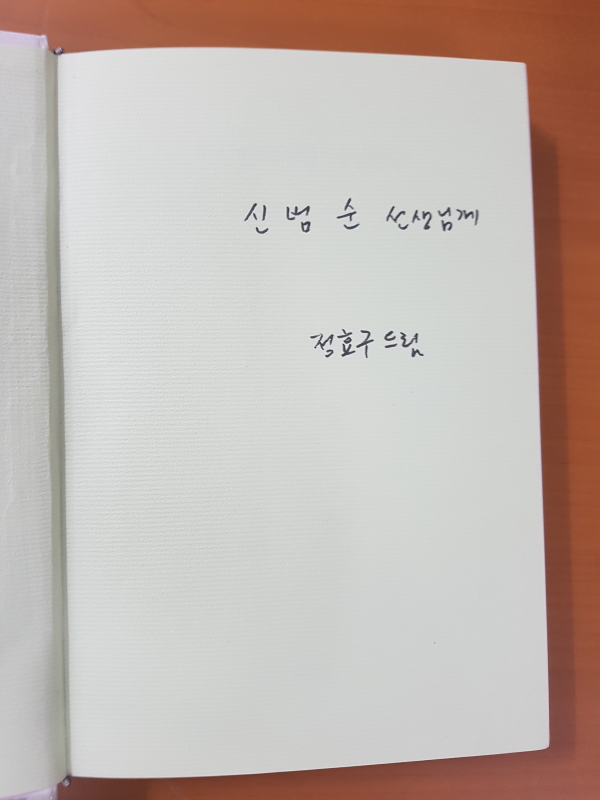 신 범 순 선생님께
정효구 드림